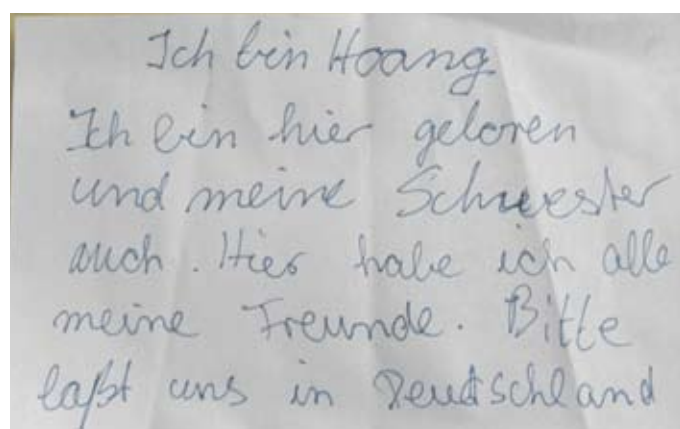 Ich bin Hoang
Ich bin hier geloren
und meine Schwester
auch. Hier habe ich alle
meine Freunde. Bitte
laßt uns in Deutschland